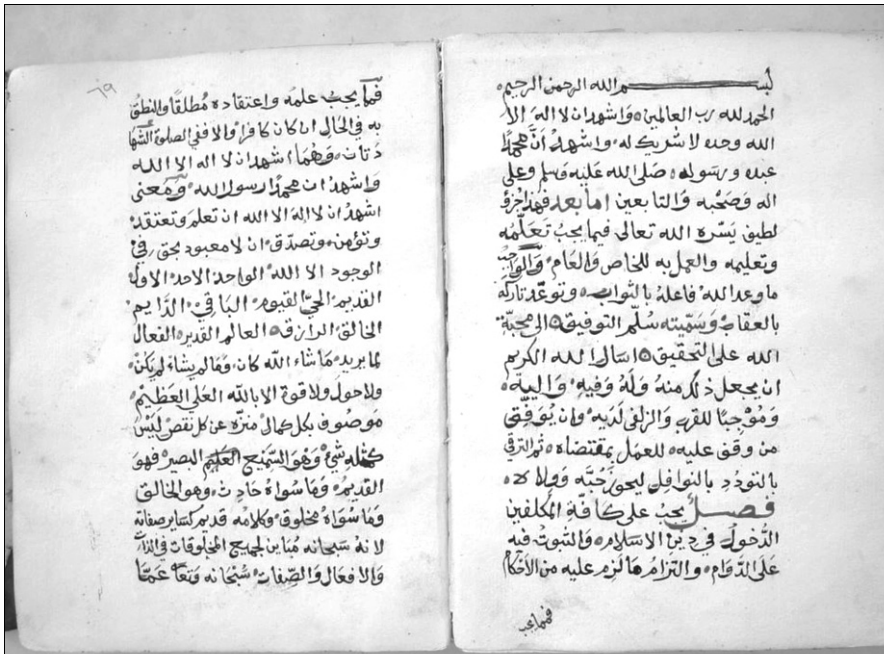 بسم الله الرحمن الرحيم
الحمد لله رب العالمين واشهد ان لا اله الا
الله وحده لا شريك له واشهد أن محمدا
عبده ورسوله صلى الله عليه وسلم وعلى
اله وصحبه والتابعين اما بعد فهذا جزؤ
لطيف يسره الله تعالى فيما يجب تعلمه
وتعليمه والعمل به للخاص والعام والواجب
ما وعد الله فاعله بالثواب وتوعد تاركه
بالعقاب وسميته سلم التوفيق الى محبة
الله على التحقيق اسال الله الكريم
ان يجعل ذلك منه وله وفيه واليه
وموجبا للقرب والزلفى لديه وان يوفق
من وقف عليه للعمل بمقتضاه ثم الترقي
بالتودد بالنوافل ليحوز حبه وولاه
فصل يجب على كافة المكلفين
الدخول في دين الاسلام والثبوت فيه
على الدوام والتزام ما لزم عليه من الأحكام
فمما يجب
٦٩
فمما يجب علمه واعتقاده مطلقا والنطق
به في الحال ان كان كافرا والا ففي الصلوة الشها
دتان وهما اشهد ان لا اله الا الله
واشهد ان محمدا رسول الله ومعنى
اشهد ان لا اله الا الله ان تعلم وتعتقد
وتؤمن وتصدق ان لا معبود بحق في
الوجود الا الله الواحد الاحد الاول
القديم الحي القيوم الباقي الدايم
الخالق الرازق العالم القدير الفعال
لما يريد ما شاء الله كان وما لم يشاء لم يكن
ولا حول ولا قوة الا بالله العلي العظيم
موصوف بكل كمال منزه عن كل نقص ليس
كمثله شيء وهو السميع العليم البصير فهو
القديم وما سواه حادث وهو الخالق
وما سواه مخلوق وكلامه قديم كساير صفاته
لانه سبحانه مباين لجميع المخلوقات في الذات
والافعال والصفات سبحانه وتعالى عما